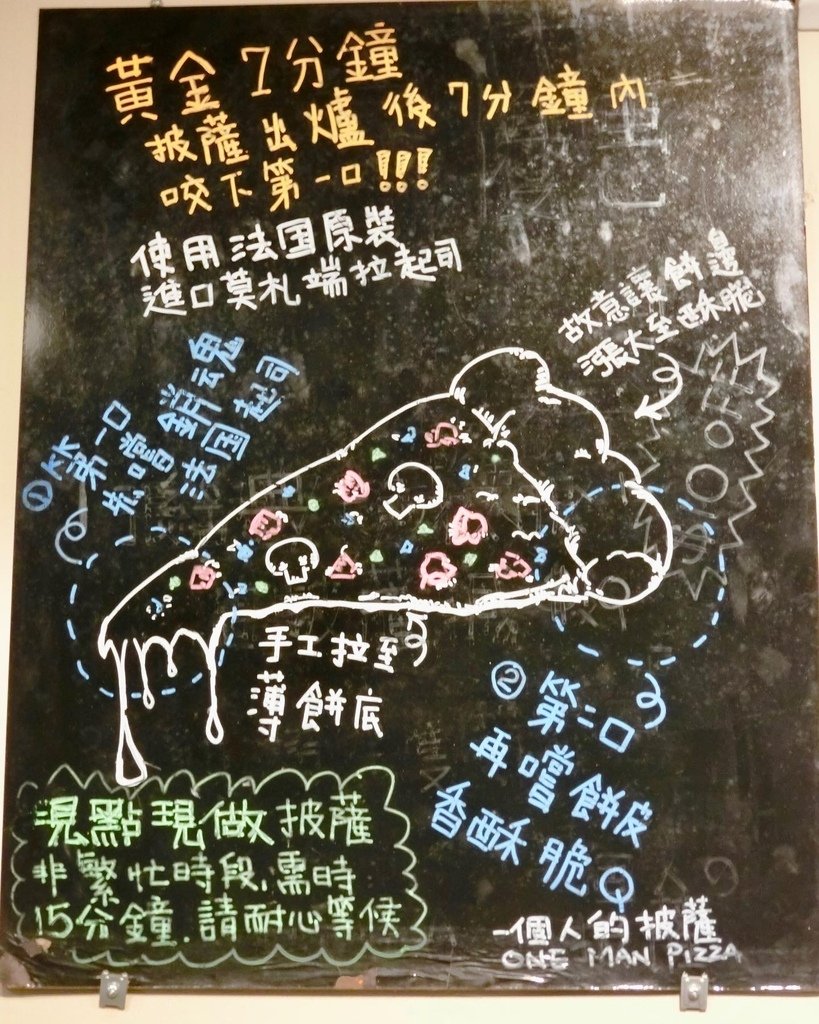 黃金7分鐘
披薩出爐後7分鐘內
咬下第一口!!!
使用法国原裝
進口莫札端拉起司
故意讓餅邊
漲大至酥脆
① 第一口
先嚐銷魂
法国起司
手工拉至
薄餅底
② 第二口
再嚐餅皮
香酥脆Q
現點現做披薩
非繁忙時段,需時
15分鐘.請耐心等候
一個人的披薩
ONE MAN PIZZA